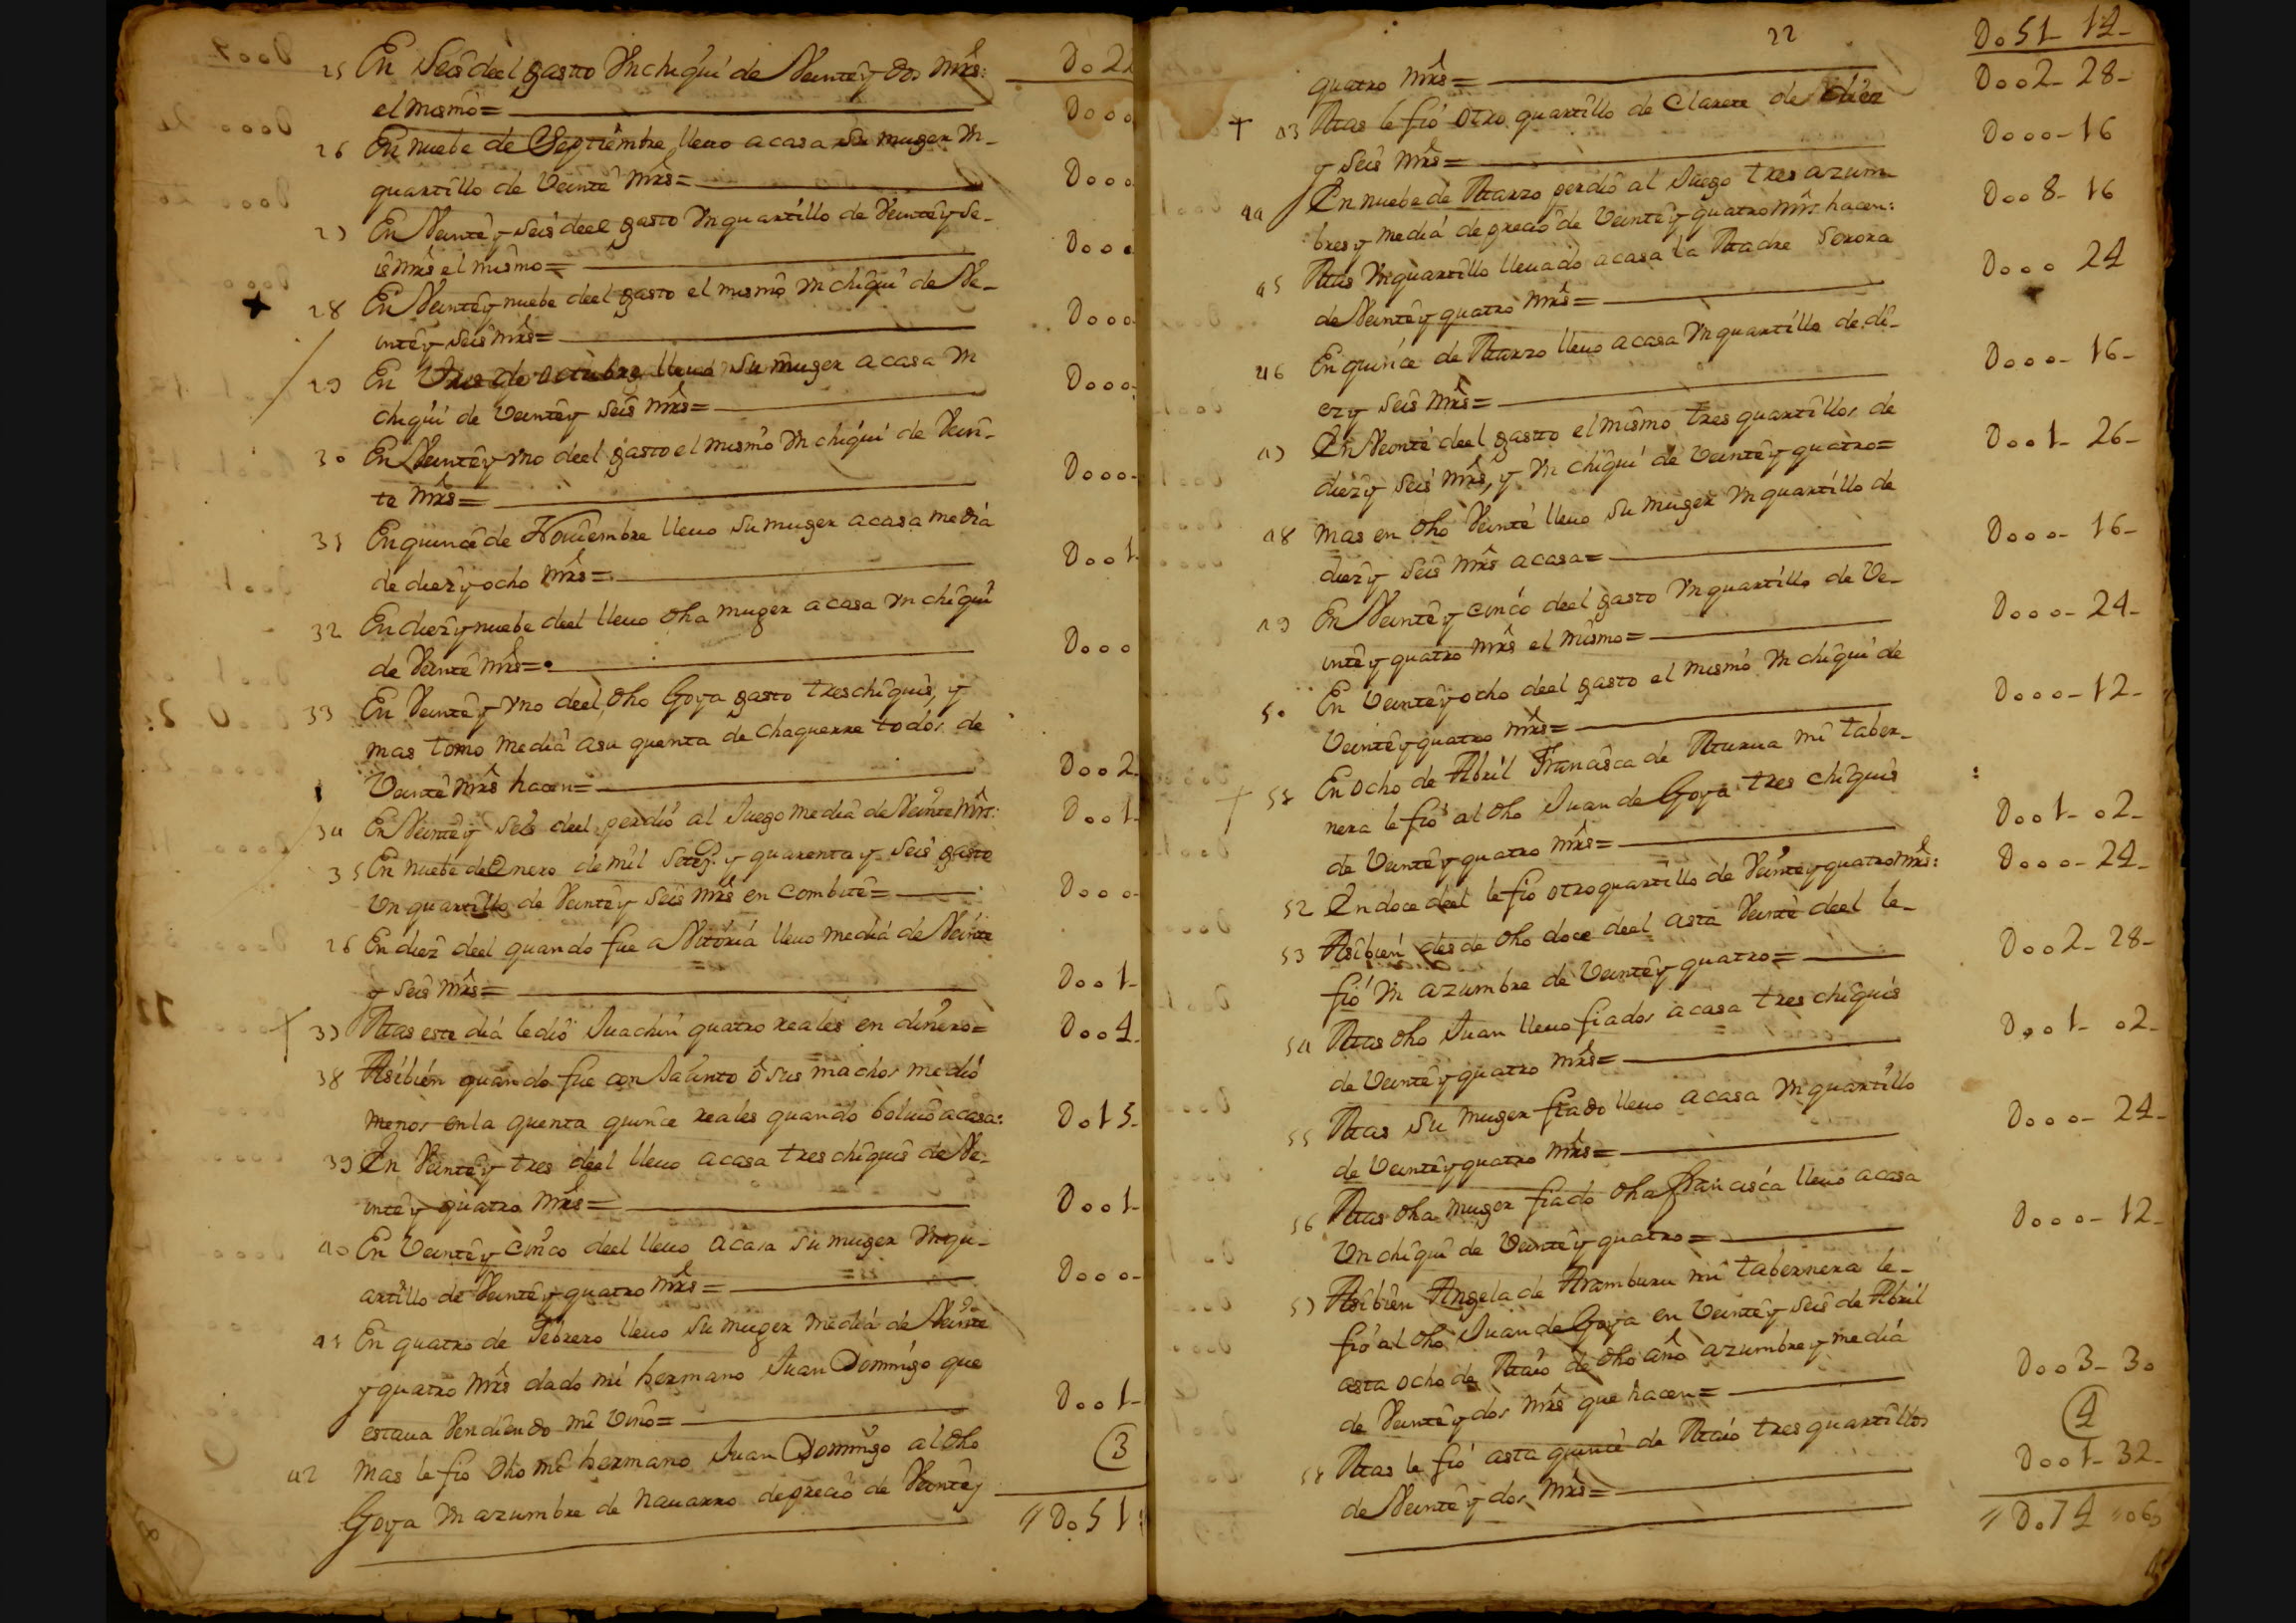 D o 22
25 En Seis deel gasto Vn chiqui de Veinte y dos mrs:
el mismo= D o o o
26 En nuebe de Septiembre lleuo a casa su muger Vn
quartillo de Veinte mrs= D o o o
27 En Veinte y seis deel gasto Vn quartillo de Veinte y se-
is mrs el mismo= D o o o
28 En Veinte y nuebe deel gasto el mismo Vn chiqui de Ve-
inte y seis mrs= D o o o
29 En tres de octubre lleuo su muger a casa Vn
chiqui de Veinte y seis mrs= D o o o
30 En Veinte y Vno deel gasto el mismo Vn chiqui de Vein-
te mrs= D o o o-
31 En quince de Nouiembre lleuo su muger a casa media
de diez y ocho mrs= D o o 1
32 En diez y nuebe deel lleuo dha muger a casa Vn chiqui
de Veinte mrs= D o o o
33 En Veinte y Vno deel, dho Goya gasto tres chiquis, y
mas tomo media a su quenta de chaguerre todos de
Veinte mrs hacen= D o o 2-
34 En Veinte y seis deel perdio al Juego media de Veinte mrs: D o o 1-
35 En nuebe de Enero de mil Setez.s y quarenta y seis gasto
Vn quartillo de Veinte y seis mrs en combite= D o o o-
26 En diez deel quando fue a Vitoria lleuo media de Veinte
y seis mrs= D o o 1-
37 Mas este dia le dio Juachin quatro reales en dinero= D o o 4-
38 Asibien quando fue con Jacinto ô sus machos me dio
menos en la quenta quince reales quando boluio a casa: D o 15-
39 En Veinte y tres deel lleuo a casa tres chiquis de Ve-
inte y quatro mrs= D o o 1-
40 En Veinte y cinco deel lleuo a casa su muger Vn qu-
artillo de Veinte y quatro mrs= D o o o-
41 En quatro de Febrero lleuo su muger media de Veinte
y quatro mrs dado mi hermano Juan Domingo que
estaua Vendiendo mi Vino= D o o 1-
42 mas le fio dho mi hermano Juan Domingo al dho 3
Goya Vn azumbre de nauarro de precio de Veinte y D o 51
22
D o 51- 14-
quatro mrs= D o o 2- 28-
43 Mas le fio otro quartillo de Clarete de diez
y seis mrs= D o o o- 16
44 En nuebe de Marzo perdio al Juego tres azum-
bres y media de precio de Veinte y quatro mrs hacen: D o o 8- 16
45 Mas Vn quartillo lleuado a casa la Madre Serora
de Veinte y quatro mrs= D o o o 24
46 En quince de Marzo lleuo a casa Vn quartillo de di-
ez y seis mrs= D o o o- 16-
47 En Veinte deel gasto el mismo tres quartillos de
diez y seis mrs, y Vn chiqui de Veinte y quatro= D o o 1- 26-
48 mas en dho Veinte lleuo su muger Vn quartillo de
diez y seis mrs a casa= D o o o- 16-
49 En Veinte y cinco deel gasto Vn quartillo de Ve-
inte y quatro mrs el mismo= D o o o- 24-
50 En Veinte y ocho deel gasto el mismo Vn chiqui de
Veinte y quatro mrs= D o o o- 12-
51 En ocho de Abril Francisca de Murua mi taber-
nera le fio al dho Juan de Goya tres chiquis
de Veinte y quatro mrs= D o o 1- o2-
52 En doce deel le fio otro quartillo de Veinte y quatro mrs: D o o o- 24-
53 Asibien desde dho doce deel asta Veinte deel le-
fio Vn azumbre de Veinte y quatro= D o o 2- 28-
54 Mas dho Juan lleuo fiados a casa tres chiquis
de Veinte y quatro mrs= D o o 1- o2-
55 Mas su muger fiado lleuo a casa Vn quartillo
de Veinte y quatro mrs= D o o o- 24-
56 Mas dha muger fiado dha Francisca lleuo a casa
Vn chiqui de Veinte y quatro= D o o o- 12-
57 Asibien Angela de Aramburu mi tabernera le-
fio al dho Juan de Goya en Veinte y seis de Abril
asta ocho de Maio de dho año azumbre y media
de Veinte y dos mrs que hacen= D o o 3- 3o
4
58 Mas le fio asta quince de Maio tres quartillos
de Veinte y dos mrs= D o o 1- 32-
D o 74